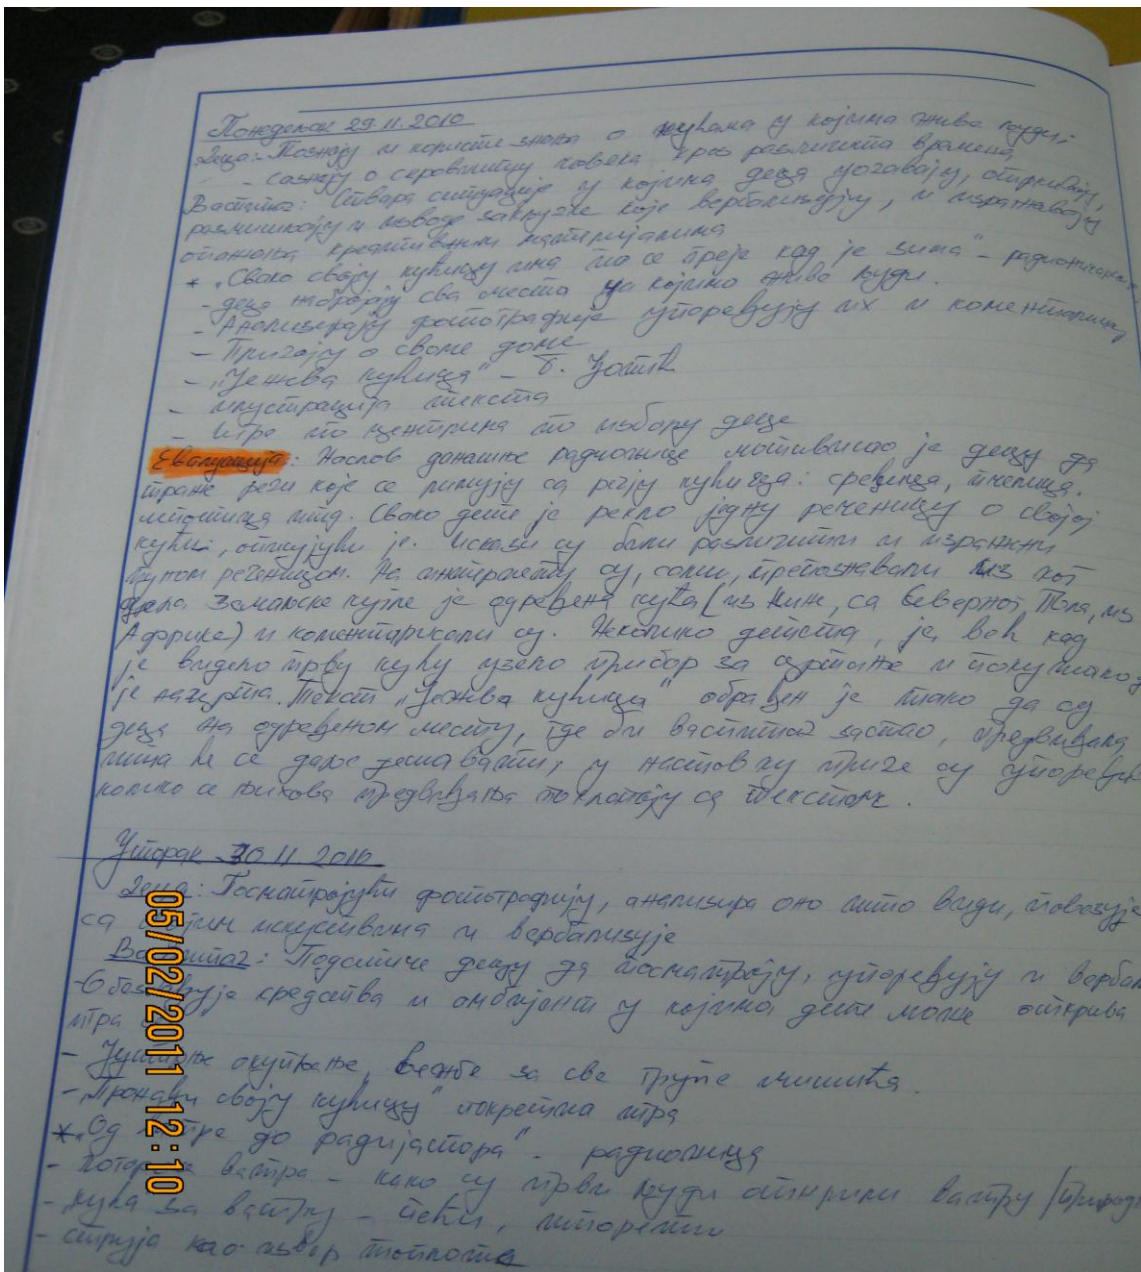 Понедељак 29.11.2010
Деца: - Познају и користе знања о кућама у којима живе људи;
- сазнају о серовитцу човека кроз различита времена
Васпитач: Ствара ситуације у којима деца уочавају, откривају,
размишљају и изводе закључке које вербализују, и изражавају
опажања креативним материјалима
* „Свако своју кућицу има да се греје кад је зима" - радионичарска
- деца набрајају сва места на којима живе људи.
- Анализирају фотографије упоређују их и коментаришу
- Причају о своме доме
- „Јежева кућица" - Б. Ћопић
- илустрација текста
- Игре по центрима по избору деце
Евалуација: Наслов данашње радионице мотивисао је децу да
траже речи које се римују са речју кућица: средица, пчелица.
итд. Свако дете је рекло једну реченицу о својој
кући, описујући је. Искази су били различити и изражени
пуном реченицом. На су, сами, препознавали из ког
дела Земљске кугле је одређена кућа (из Кине, са Северног Пола, из
Африке) и коментарисали су. Неколико детета, је, већ кад
је видело прву кућу узело прибор за цртање и покушало да
је нацрта. Текст „Јежева кућица" обрађен је тако да су
деца на одређеном месту, где би васпитач застао, предвиђала
шта ће се даље дешавати, у наставку приче су упоређив
колико се њихова предвиђања поклапају са текстом.
Уторак 30 11 2010
Деца: Посматрајући фотографију, анализира оно што види, повезује
са искуствима и вербализује
Васпитач: Подстиче децу да посматрају, упоређују и вербал
- Обезбеђује средства и амбијент у којима дете може открива
игра
- Јутарње окупљање, вежбе за све групе мишића.
- „Пронађи своју кућицу" покретна игра
* „Од ватре до радијатора" - радионица
- ватра - како су први људи открили ватру /природ
- кућа за ватру - пећи, шпорети
- струја као извор топлоте